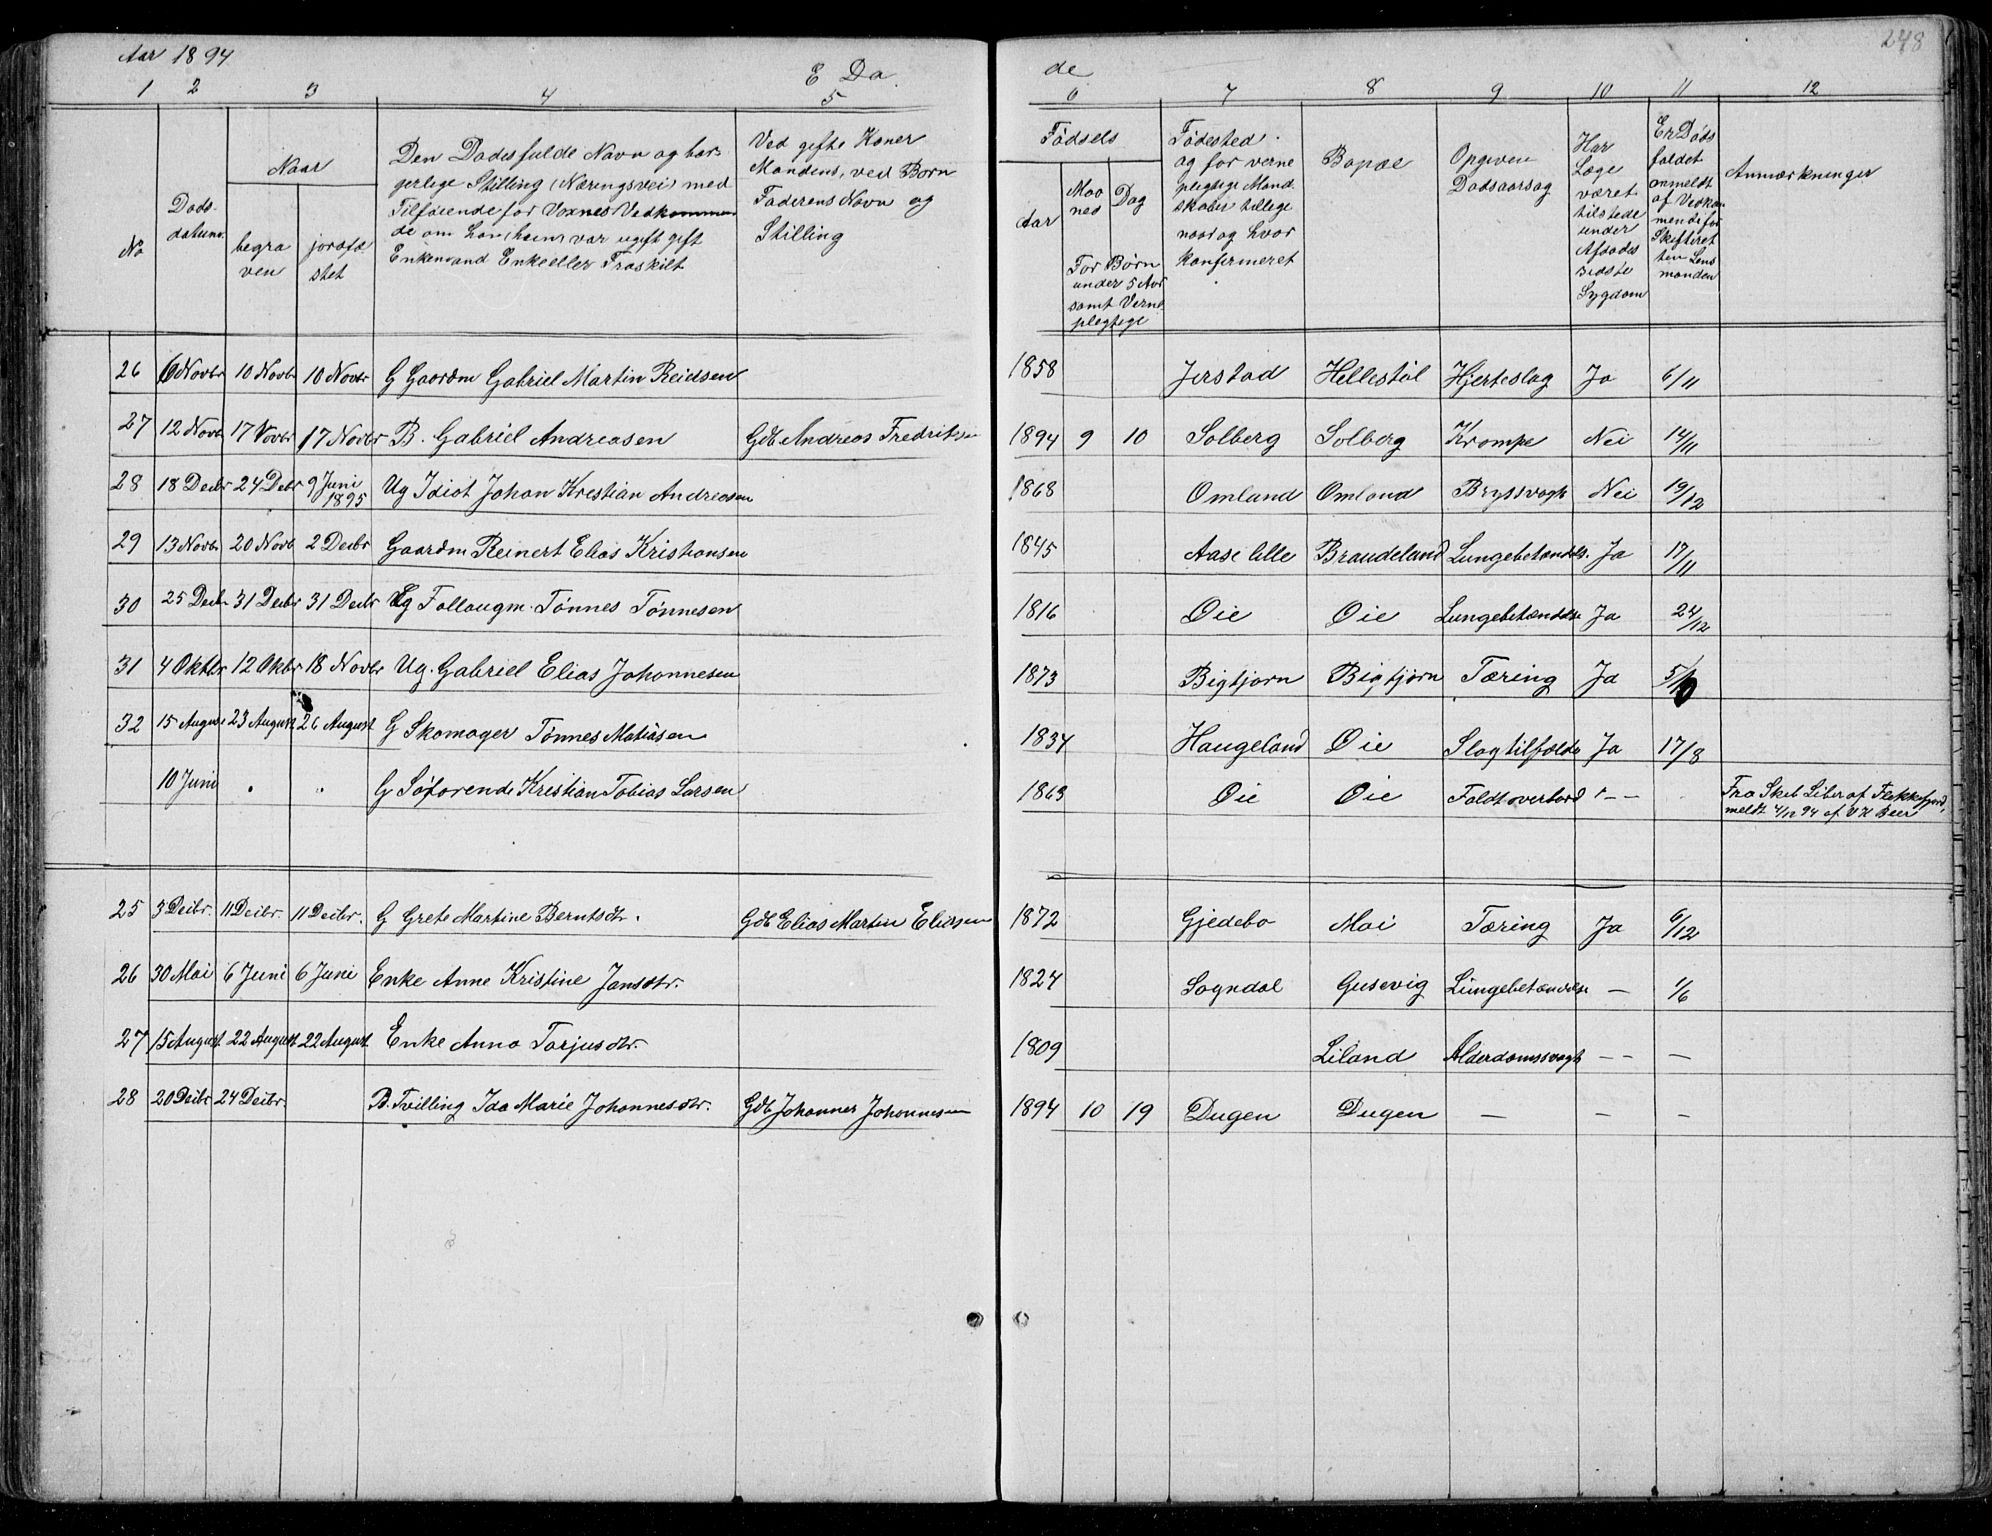 Aar 1894
E Dø
de
248
1 2 3 4 5 6 7 8 9 10 11 12
No
Døds-
datum
Naar
begra
ven
jordfæ
stet
Den Dødes fulde Navn og bor-
gerlige Stilling (Næringsvei) med
Tilføiende for Voxnes Vedkommen
de om han, hun var ugift gift
Enkemand Enke eller Fraskilt
Ved gifte Koner
Mandens, ved Børn
Faderens Navn og
Stilling
Fødsels
Aar
Maa
ned
Dag
For Børn
under 5 Aar
samt Verne-
plegtige
Fødested
og for verne
plegtige Mand-
skaber tillige
naar og hvor
konfirmeret
Bopæl
Opgiven
Dødsaarsag
Har
Læge
været
tilstede
under
Afdødes
sidste
Sygdom
Er Døds
faldet
anmeldt
af Vedkom
mende for
Skifteret
ten Lens
manden
Anmærkninger
26 6 Novbr 10 Novbr 10 Novbr G Gaardm Gabriel Martin Reidsen 1858 Jerstad Hellestøl Hjerteslag Ja 6/11
27 12 Novb 17 Novbr 17 Novbr B. Gabriel Andreasen Gdb Andreas Fredriksen 1894 9 10 Solberg Solberg Krampe Nei 14/11
28 18 Decbr 24 Debr 9 Juni 1895 Ug Idiot Johan Kristian Andreasen 1868 Omland Omland Brystsvagh Nei 19/12
29 13 Novbr 20 Novb 2 Decbr Gaardm Reinert Elias Kristiansen 1845 Aase lille Braudeland Lungebetændels. Ja 17/11
30 25 Decbr 31 Decbr 31 Decbr Ug Follaugm. Tønnes Tønnesen 1816 Øie Øie Lungebetændelse Ja 24/12
31 4 Oktbr 12 Oktbr 18 Novbr Ug. Gabriel Elias Johannesen 1873 Bigtjørn Bigtjørn Tæring Ja 5/10
32 15 August 23 August 26 August G Skomager Tønnes Matiasen 1834 Haugeland Øie Slagtilfælde Ja 17/8
10 Juni " " G Søfarende Kristian Tobias Larsen 1863 Øie Øie Faldt overbord - - Fra Skib Liber af Flekkefjord,
meldt 4/12 94 af V H Beer
25 3 Decbr. 11 Decbr. 11 Decbr. G Grete Martine Berntsdtr. Gdb Elias Martin Eliassen 1872 Gjedebo Moi Tæring Ja 6/12
26 30 Mai 6 Juni 6 Juni Enke Anne Kristine Jansdtr. 1824 Sogndal Gusevig Lungebetændelse — 1/6
27 15 August 22 August 22 August Enke Anna Tarjusdtr. 1809 Liland Alderdomssvagh - - —
28 20 Decbr 24 Decbr. B. Tvilling Ida Marie Johannesdtr. Gdb Johannes Johannesen 1894 10 19 Dugen Dugen — - -